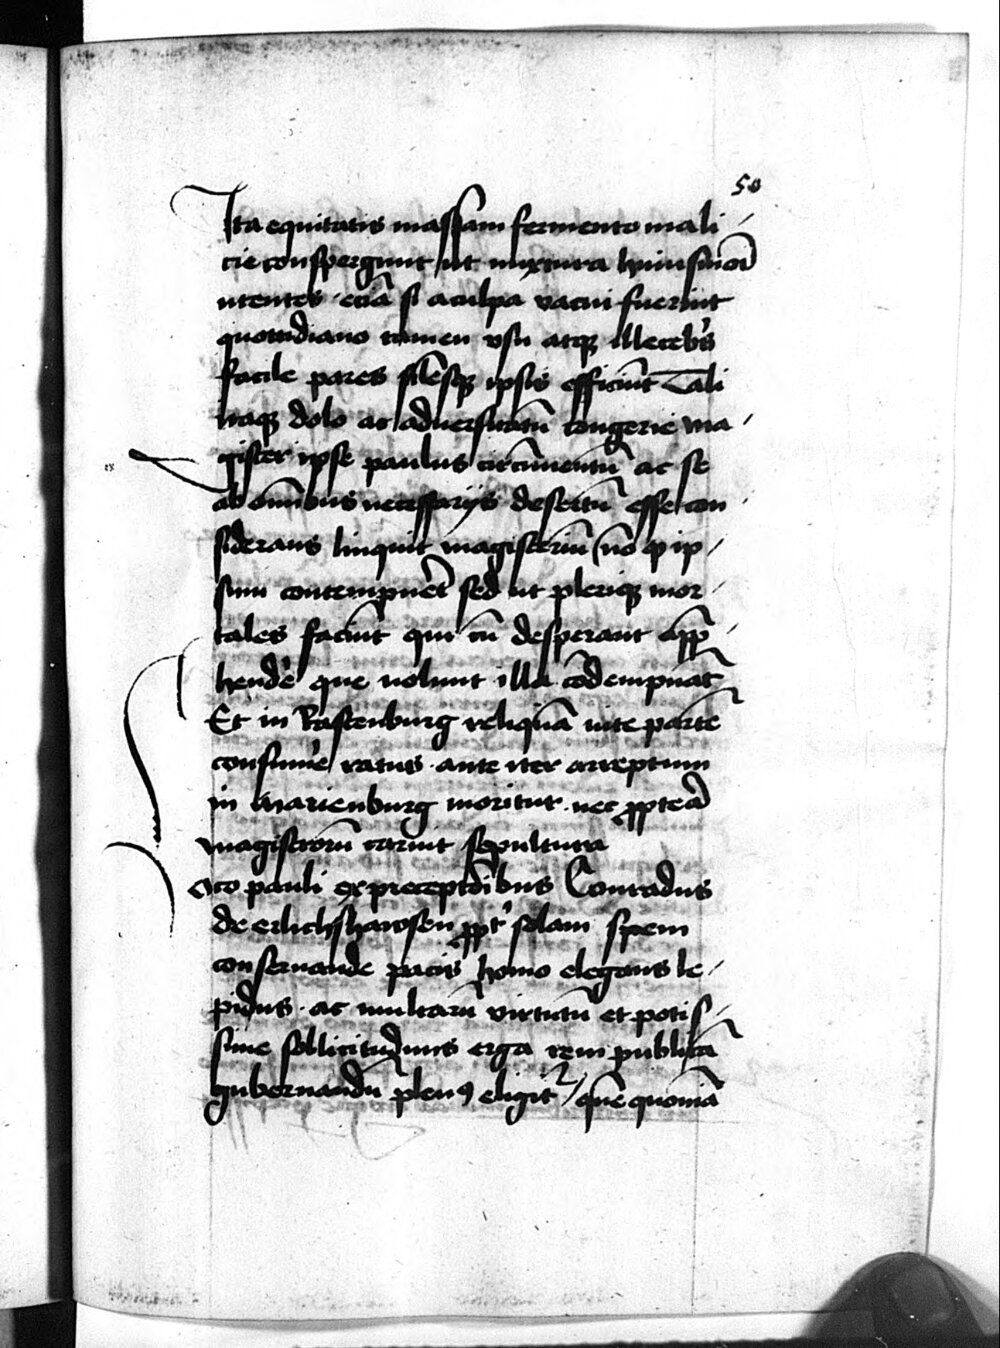 50
Ita equitatis massam fermento mali
cie conspergunt ut mixtura huiusmodi
utentes etiā si a culpa vacui fuerint
quottidiano tamen vsu atqꝫ illecebrꝭ
facile pares silēsqꝫ ipsis efficiūt Tali
itaqꝫ dolo ac aduersitatū congerie ma
gister ipse paulus circūuentū ac se
ab oīnibus necessarijs desertū esse con
siderans linquit magisteriū nō ꝙ ip
sum contempneret sed ut pleriqꝫ mor
tales faciūt qui cū desperant app̄
hendere que uolunt illa cōdempnāt
Et in Rastenburg reliquā uite partē
consumere ratus ante iter arreptum
in Marienburg moritur nec ꝓpterea
magistrorū caruit sepultura
Acto pauli ex preceptoribus Conradus
de erlichshawsen ꝓpter solam spem
conseruande pacis homo elegans le
pidus ac multarū virtutū et potis
sime sollicitudinis erga rem publicā
gubernandā plenꝰ eligitur quē quoniā